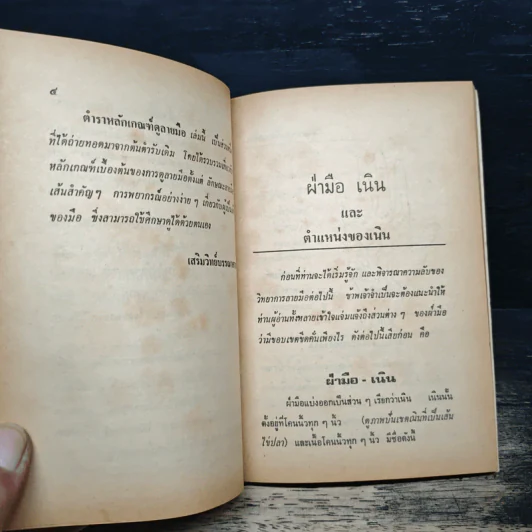 ๔
ตำราหลักเกณฑ์ดูลายมือ เล่มนี้ เป็น
ที่ได้ถ่ายทอดมาจากต้นตำรับเดิม โดยได้รวบรวม
หลักเกณฑ์เบื้องต้นของการดูลายมือตั้งแต่ ลักษณะ
เส้นสำคัญๆ การพยากรณ์อย่างง่าย ๆ เกี่ยวกับ
ของมือ ซึ่งสามารถใช้ศึกษาดูได้ด้วยตนเอง
เสริมวิทย์บรรณาคาร
ฝ่ามือ เนิน
และ
ตำแหน่งของเนิน
ก่อนที่ท่านจะได้เริ่มรู้จัก และพิจารณาความลับของ
วิทยาการลายมือต่อไปนี้ ข้าพเจ้าจำเป็นจะต้องแนะนำให้
ท่านผู้อ่านทั้งหลายเข้าใจแจ่มแจ้งถึงส่วนต่าง ๆ ของฝ่ามือ
ว่ามีขอบเขตขีดคั่นเพียงไร ดังต่อไปนี้เสียก่อน คือ
ฝ่ามือ - เนิน
ฝ่ามือแบ่งออกเป็นส่วน ๆ เรียกว่าเนิน เนินนั้น
ตั้งอยู่ที่โคนนิ้วทุก ๆ นิ้ว (ดูภาพปันเขตเนินที่เป็นเส้น
ไข่ปลา) และเนื้อโคนนิ้วทุก ๆ นิ้ว มีชื่อดังนี้